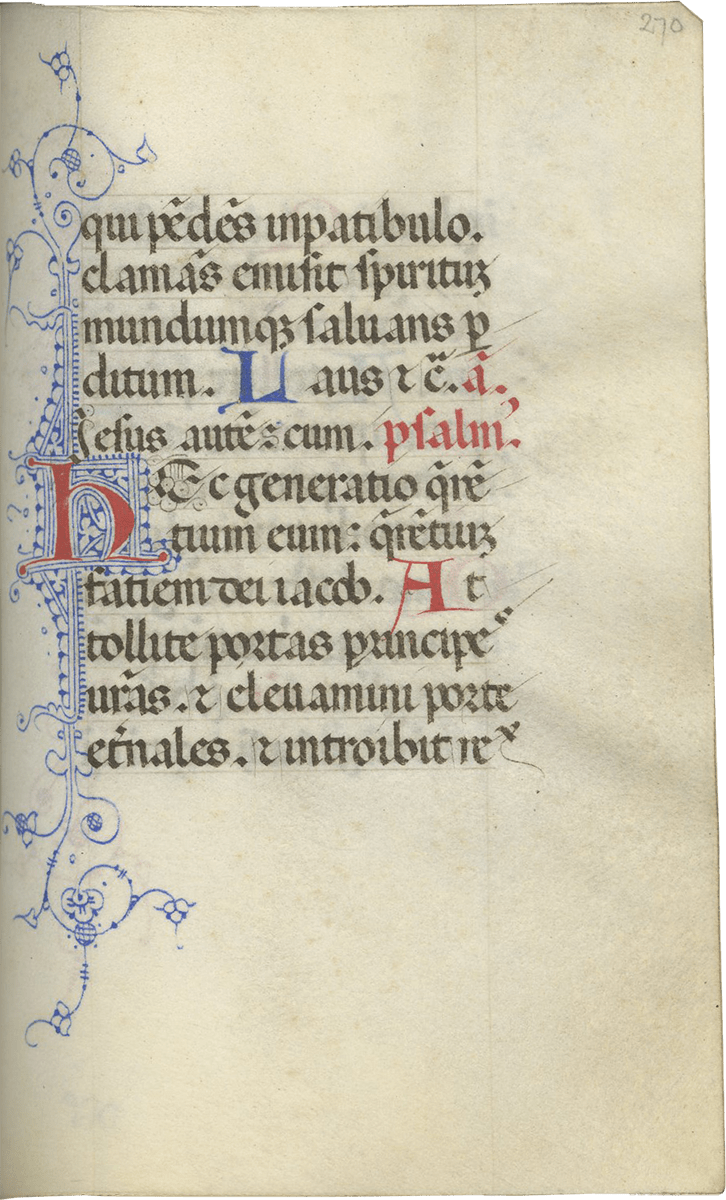 270
qui pẽdẽs in patibulo.
clamãs emisit spirituꝫ
mundumqꝫ saluans ꝑ
ditum. Laus ⁊ c̃. ã.
Jesus autẽ: cum. psalm᾽.
HEc generatio q̃rẽ
tium eum: q̃rẽtuꝫ
fatiem dei iacob. At
tollite portas principeˢ
ur̃as. ⁊ eleuamini porte
et̃nales. ⁊ introibit reˣ